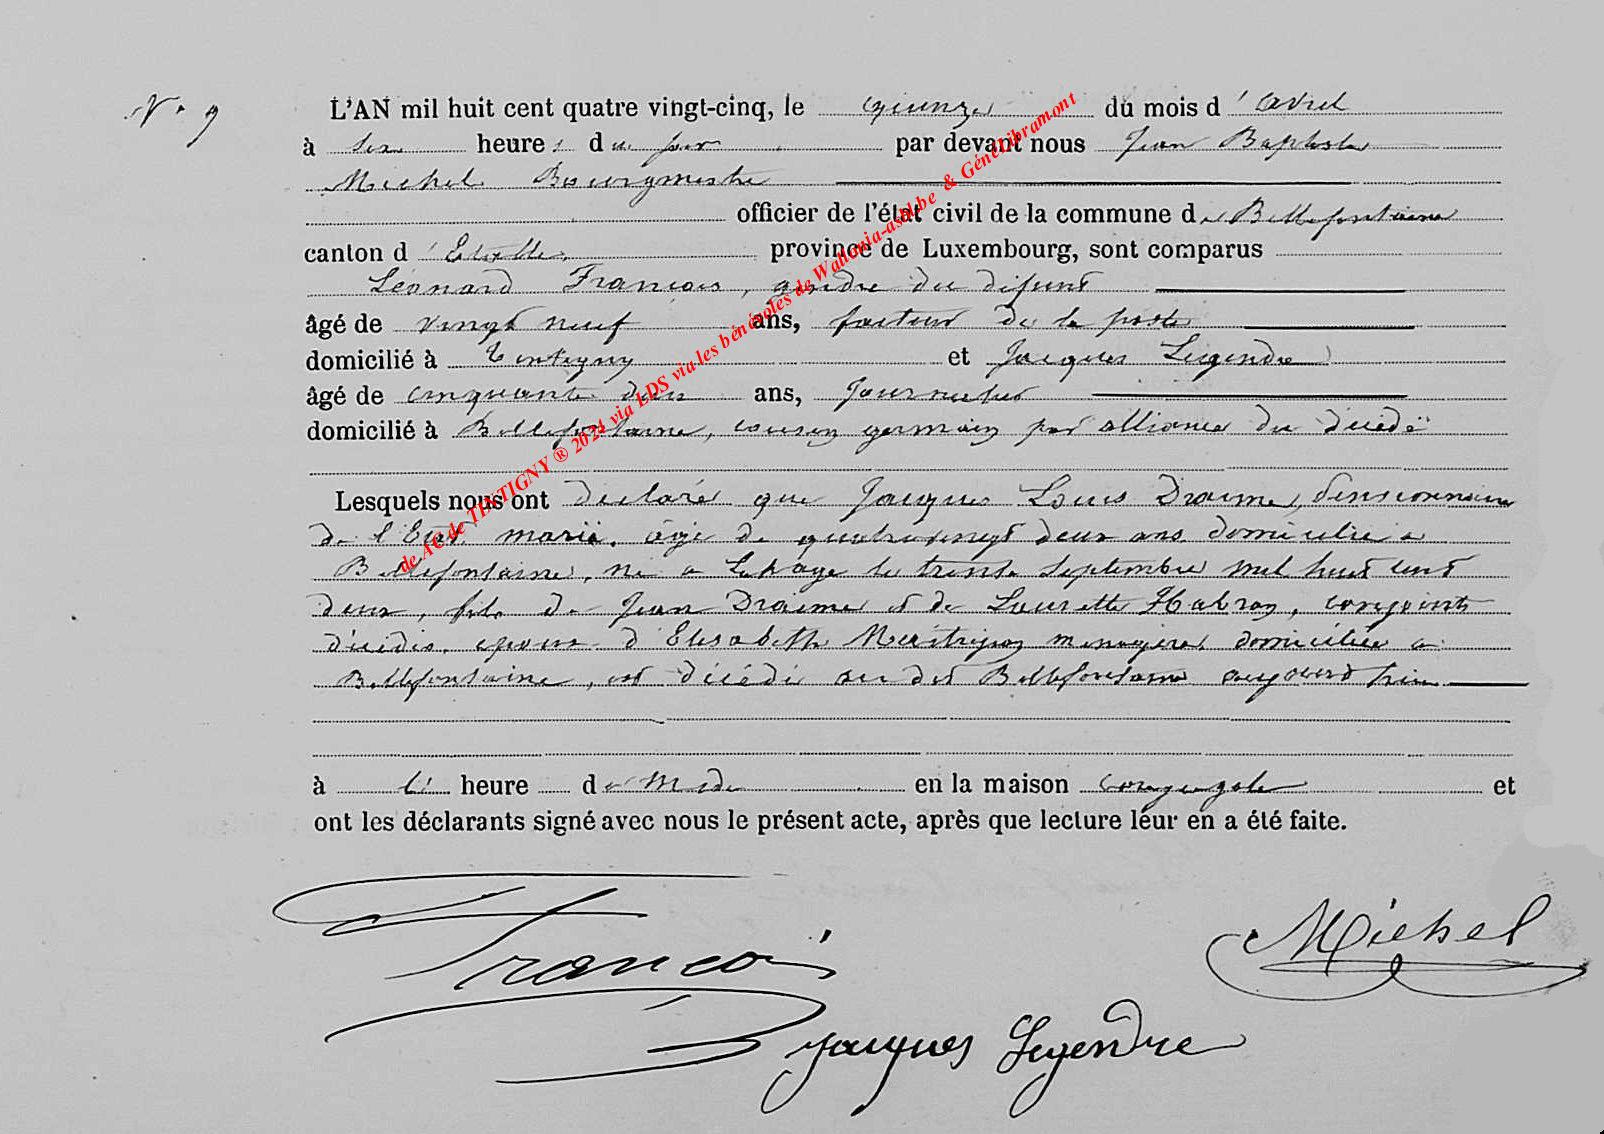 N° 9
L'AN mil huit cent quatre vingt-cinq, le quinze du mois d'avril
à six heures du soir par devant nous Jean Baptiste
Michel Bourgmestre
officier de l'état civil de la commune de Bellefontaine
canton d'Etalle province de Luxembourg, sont comparus
Léonard François, gendre du défunt
âgé de vingt neuf ans, facteur de la poste
domicilié à Tintigny et Jacques Legendre
âgé de cinquante deux ans, Journalier
domicilié à Bellefontaine, cousin germain par alliance du décédé
Lesquels nous ont déclaré que Jacques Louis Draime, Pensionnaire
de l'Etat, marié, âgé de quatrevingt deux ans domicilié à
Bellefontaine, né à Lahage le trente Septembre mil huit cent
deux, fils de Jean Draime et de Laurette Habran, conjoints
décédés, époux d'Elisabeth ménagère, domiciliée à
Bellefontaine, est décédé au dit Bellefontaine aujourd'hui
à heure de en la maison conjugale et
ont les déclarants signé avec nous le présent acte, après que lecture leur en a été faite.
François
Michel
Jacques Legendre
de AC de TINTIGNY ® 2024 via LDS via les bénévoles de Wallonia-asbl.be & Génélibramont